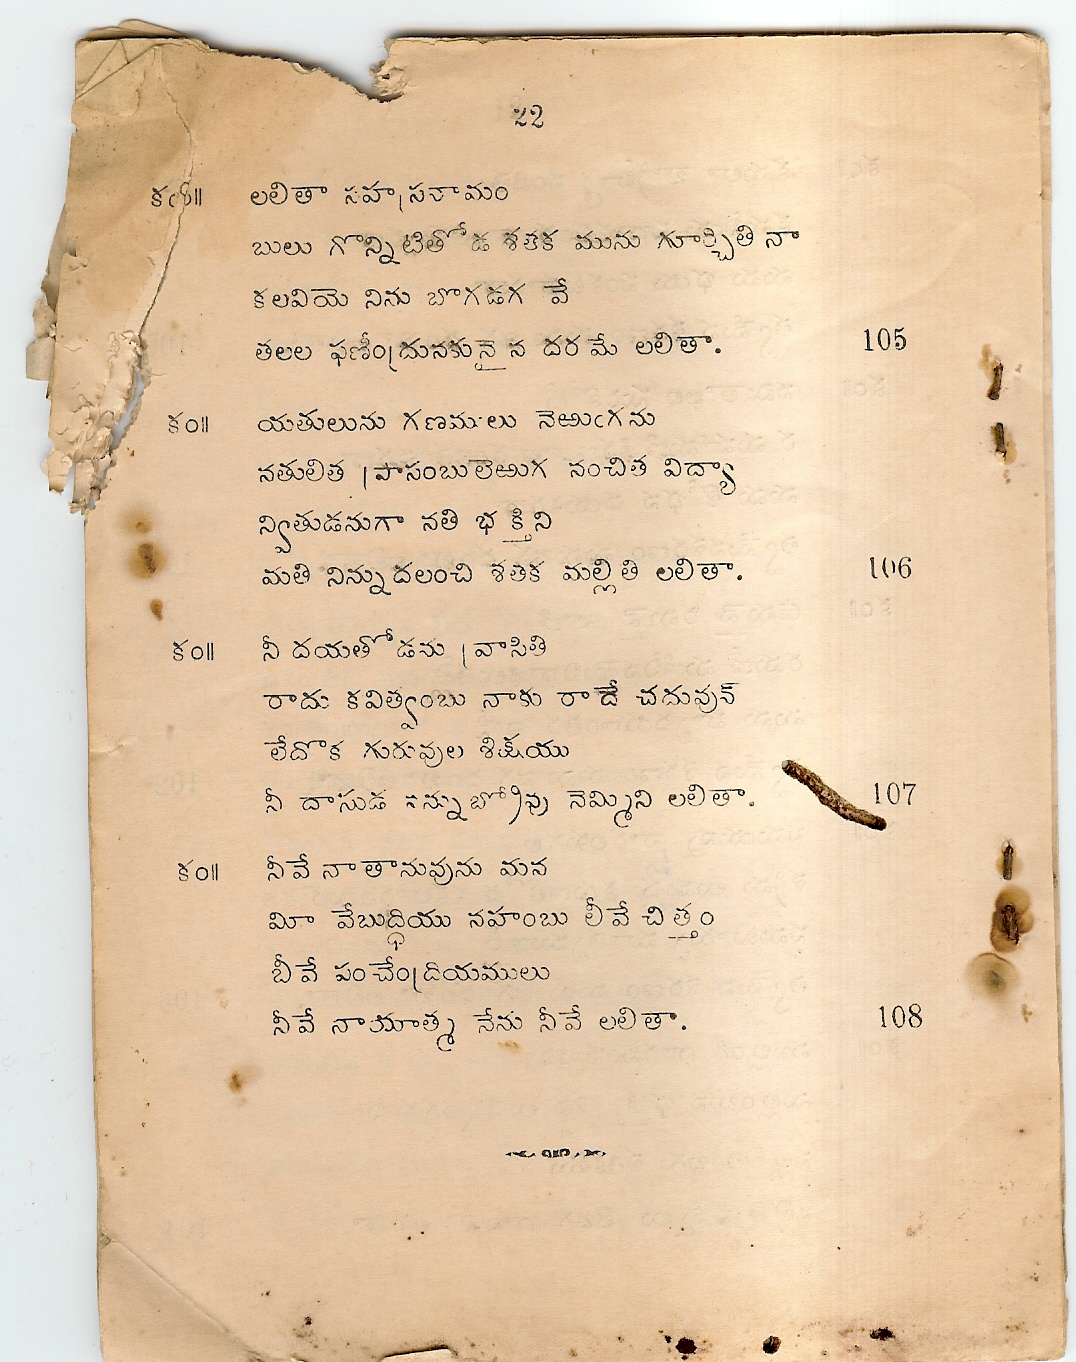 22
కం॥ లలితా సహస్రనామం
బులు గొన్నిటితోడ శతక మును గూర్చితి నా
కలవియె నిను బొగడగ వే
తలల ఫణీంద్రునకునై న దరమే లలితా. 105
కం॥ యతులును గణములు నెఱుఁగను
నతులిత ప్రాసంబులెఱుగ నంచిత విద్యా
న్వితుడనుగా నతి భక్తిని
మతి నిన్నుదలంచి శతక మల్లితి లలితా. 106
కం॥ నీ దయతోడను వ్రాసితి
రాదు కవిత్వంబు నాకు రాదే చదువున్
లేదొక గురువుల శిక్షయు
నీ దాసుడ నన్నుబ్రోవు నెమ్మిని లలితా. 107
కం॥ నీవే నాతానువును మన
మీ వేబుద్ధియు నహంబు లీవే చిత్తం
బీవే పంచేంద్రియములు
నీవే నాయాత్మ నేను నీవే లలితా. 108